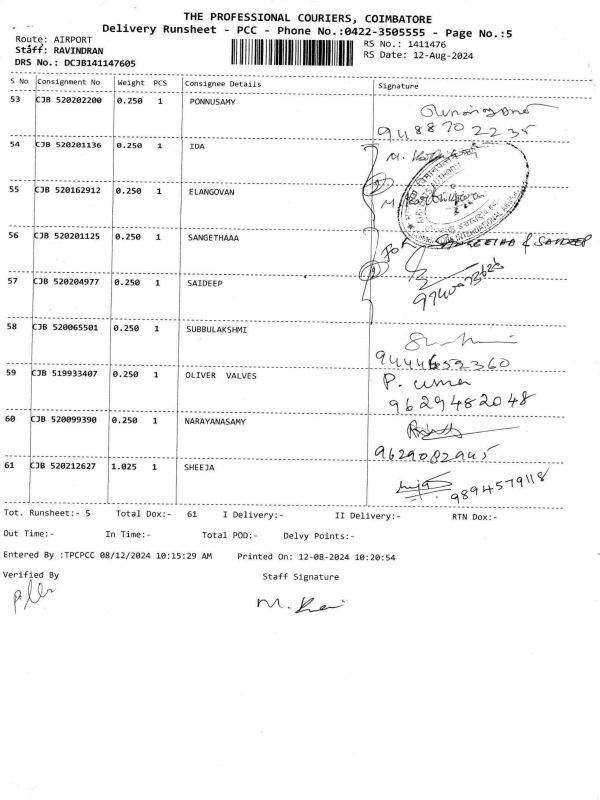 THE PROFESSIONAL COURIERS, COIMBATORE
Delivery Runsheet - PCC - Phone No.:0422-3505555 - Page No.:5
Route: AIRPORT
RS No.: 1411476
Staff: RAVINDRAN
RS Date: 12-Aug-2024
DRS No.: DCJB141147605
S No Consignment No Weight PCS Consignee Details Signature
53 CJB 520202200 0.250 1 PONNUSAMY
9488702235
54 CJB 520201136 0.250 1 IDA
55 CJB 520162912 0.250 1 ELANGOVAN
56 CJB 520201125 0.250 1 SANGETHAAA
for SANGEETHA & SAIDEEP
57 CJB 520204977 0.250 1 SAIDEEP
58 CJB 520065501 0.250 1 SUBBULAKSHMI
9444652360
59 CJB 519933407 0.250 1 OLIVER VALVES P. uma
9629482048
60 CJB 520099390 0.250 1 NARAYANASAMY
9629082945
61 CJB 520212627 1.025 1 SHEEJA
9894579118
Tot. Runsheet:- 5 Total Dox:- 61 I Delivery:- II Delivery:- RTN Dox:-
Out Time:- In Time:- Total POD:- Delvy Points:-
Entered By :TPCPCC 08/12/2024 10:15:29 AM Printed On: 12-08-2024 10:20:54
Verified By Staff Signature